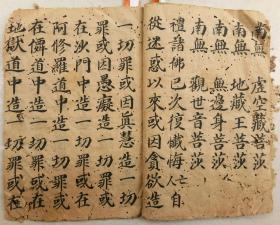 南無　虛空藏菩䓾
南無　地藏王菩䓾
南無　無邊身菩䓾
南無　觀世音菩䓾
禮諸佛已次復懺悔　亡人　自
從迷惑以來或因貪欲造
一切罪或因嗔恚造一切
罪或因愚癡造一切罪或
在沙門中造一切罪或在
阿修羅道中造一切罪或
在儕道中造一切罪或在
地獄道中造一切罪或在